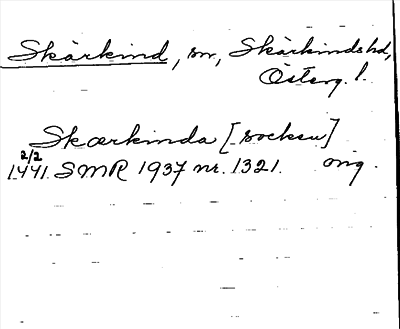 Skärkind, sn, Skärkinds hd,
Österg. l.
Skærkinda [socken]
2/2
1441. SMR 1937 nr. 1321. orig.